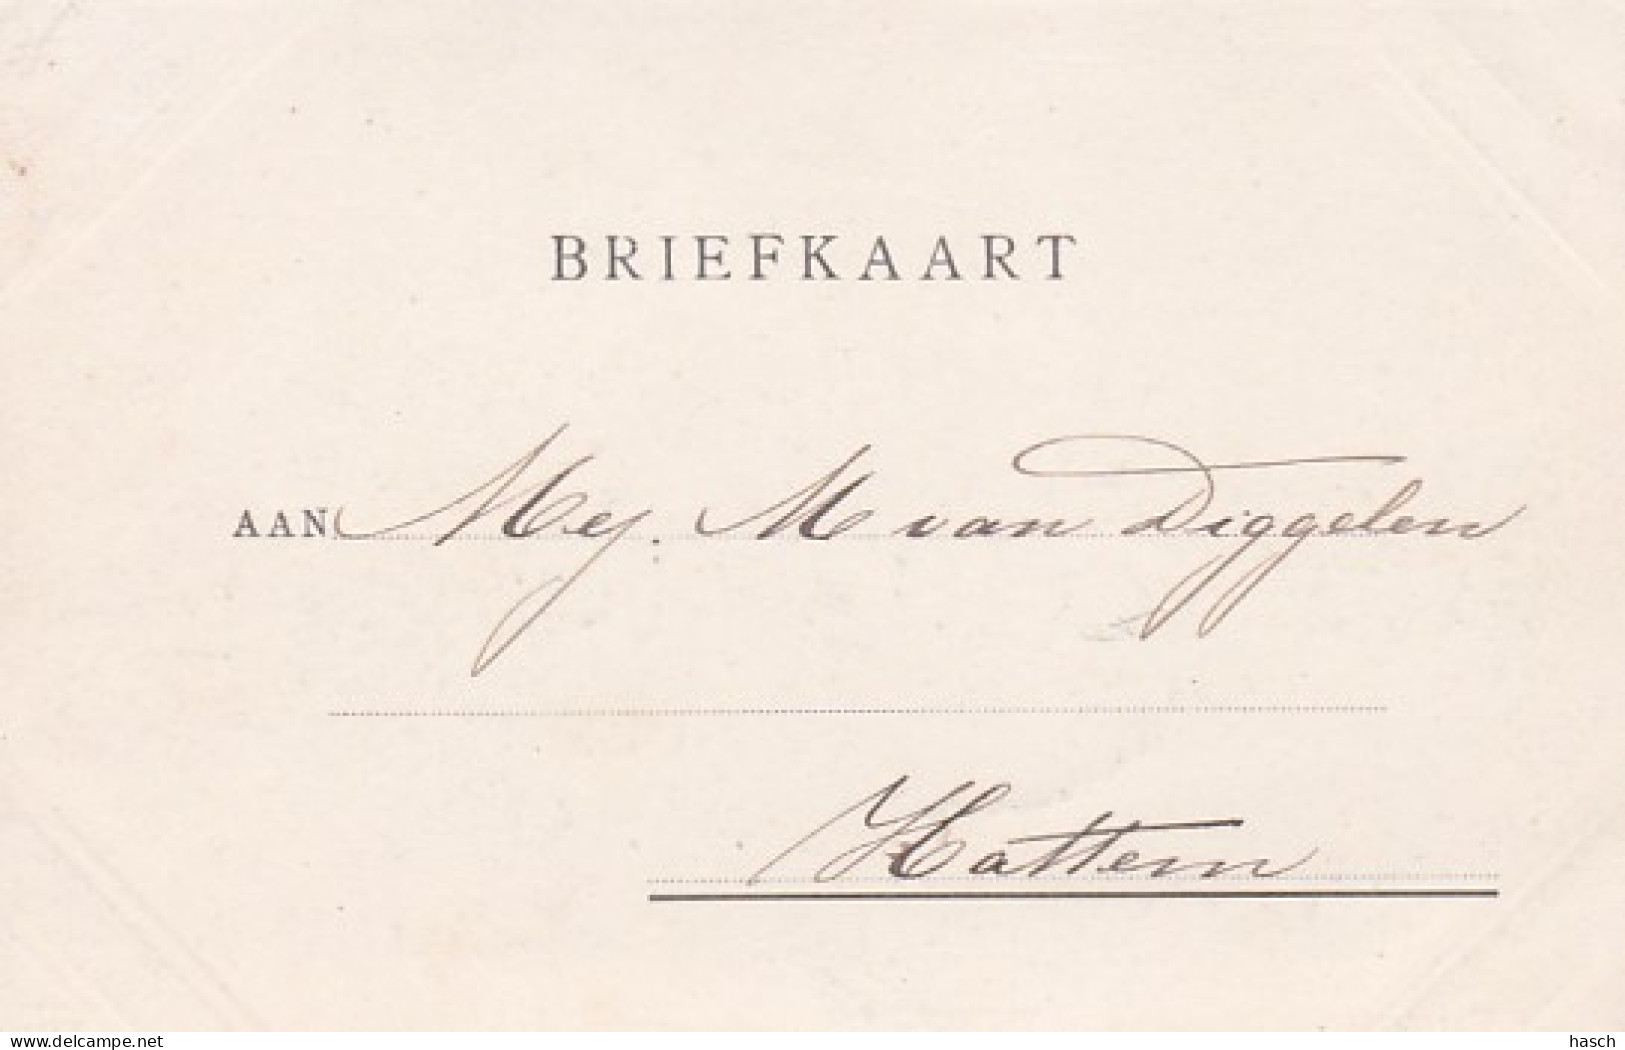 BRIEFKAART
AAN Mej. M van Diggelen
Hattem
delcampe.net
hasch